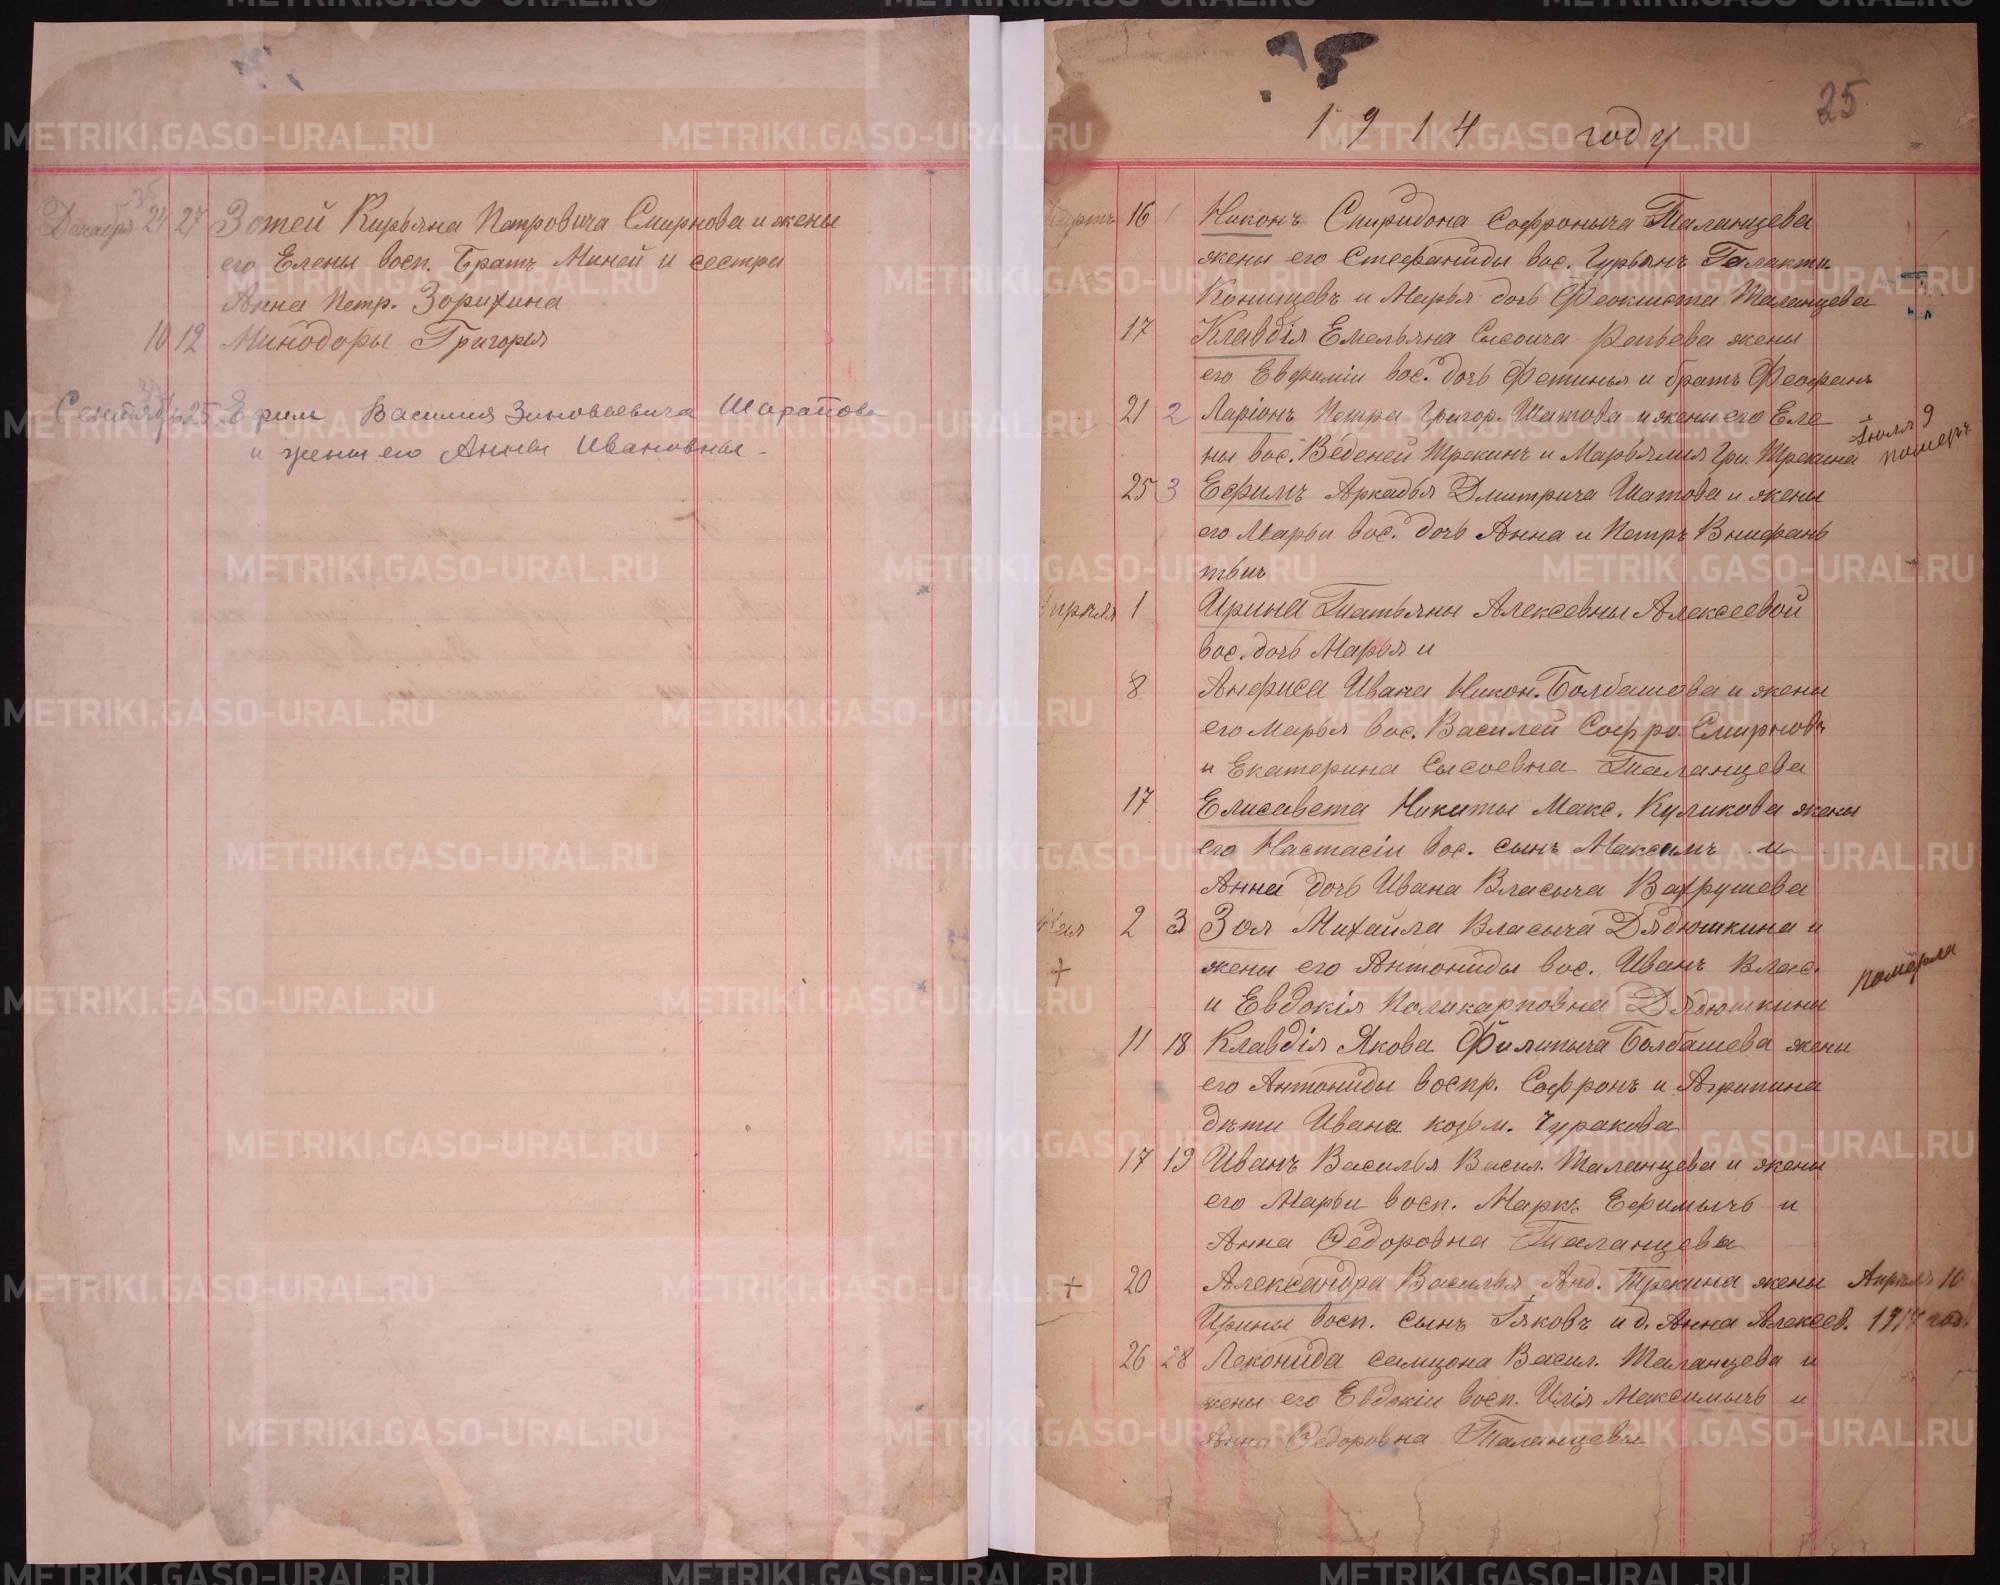 Декабря 24 27 Зотей Кирьяна Петровича Смирнова и жены
его Елены восп. Братъ Миней и сестра
Анна Петр. Зорихина
10 12 Минодоры Григорья
Сентябрь 25 Ефим Василия Зиновьевича Шарапова
и жены его Анны Ивановны.
25
1914 году
Мартъ 16 1 Никонъ Спиридона Софроныча Таланцева
жены его Стефаниды вос. Гурьянъ Галакти.
Конищевъ и Марья дочь Феоктиста Таланцева
17 Клавдія Емельяна Сысоича Репьева жены
его Евфиміи вос. дочь Фетинья и братъ Феофанъ
21 2 Ларіонъ Петра Григор. Шатова и жены его Еле
ны вос. Веденей Трекинъ и Марьямия Гри. Трекина
Іюля 9
померъ
25 3 Ефимъ Аркадья Дмитрича Шатова и жены
его Марьи вос. дочь Анна и Петръ Внифань
тьичь
Апрѣля 1 Ирина Татьяны Алексевны Алексеевой
вос. дочь Марья и
8 Анфиса Ивана Никон. Болбашова и жены
его Марья вос. Василей Софро. Смирновъ
и Екатерина Сысоевна Таланцева
17 Елисавета Никиты Макс. Куликова жены
его Настасіи вос. сынъ Максимъ и
Анна дочь Ивана Власыча Вахрушева
Мая 2 3 Зоя Михайла Власыча Дядюшкина и
+ жены его Антониды вос. Иванъ Влас.
и Евдокія Поликарповна Дядюшкины
померла
11 18 Клавдія Якова Филипыча Болбашева жены
его Антониды воспр. Софронъ и Агрипина
дѣти Ивана козьм. Чуракова
17 19 Иванъ Василья Васил. Таланцева и жены
его Марьи восп. Маркъ Ефимычъ и
Анна Федоровна Таланцева
+ 20 Александра Василья Анд. Трекина жены Апрѣль 10
Ирины восп. сынъ Яковъ и д. Анна Алексев. 1917 год.
26 28 Леконида самцона Васил. Таланцева и
жены его Евдокіи восп. Илія Максимычъ и
Анна Федоровна Таланцевы